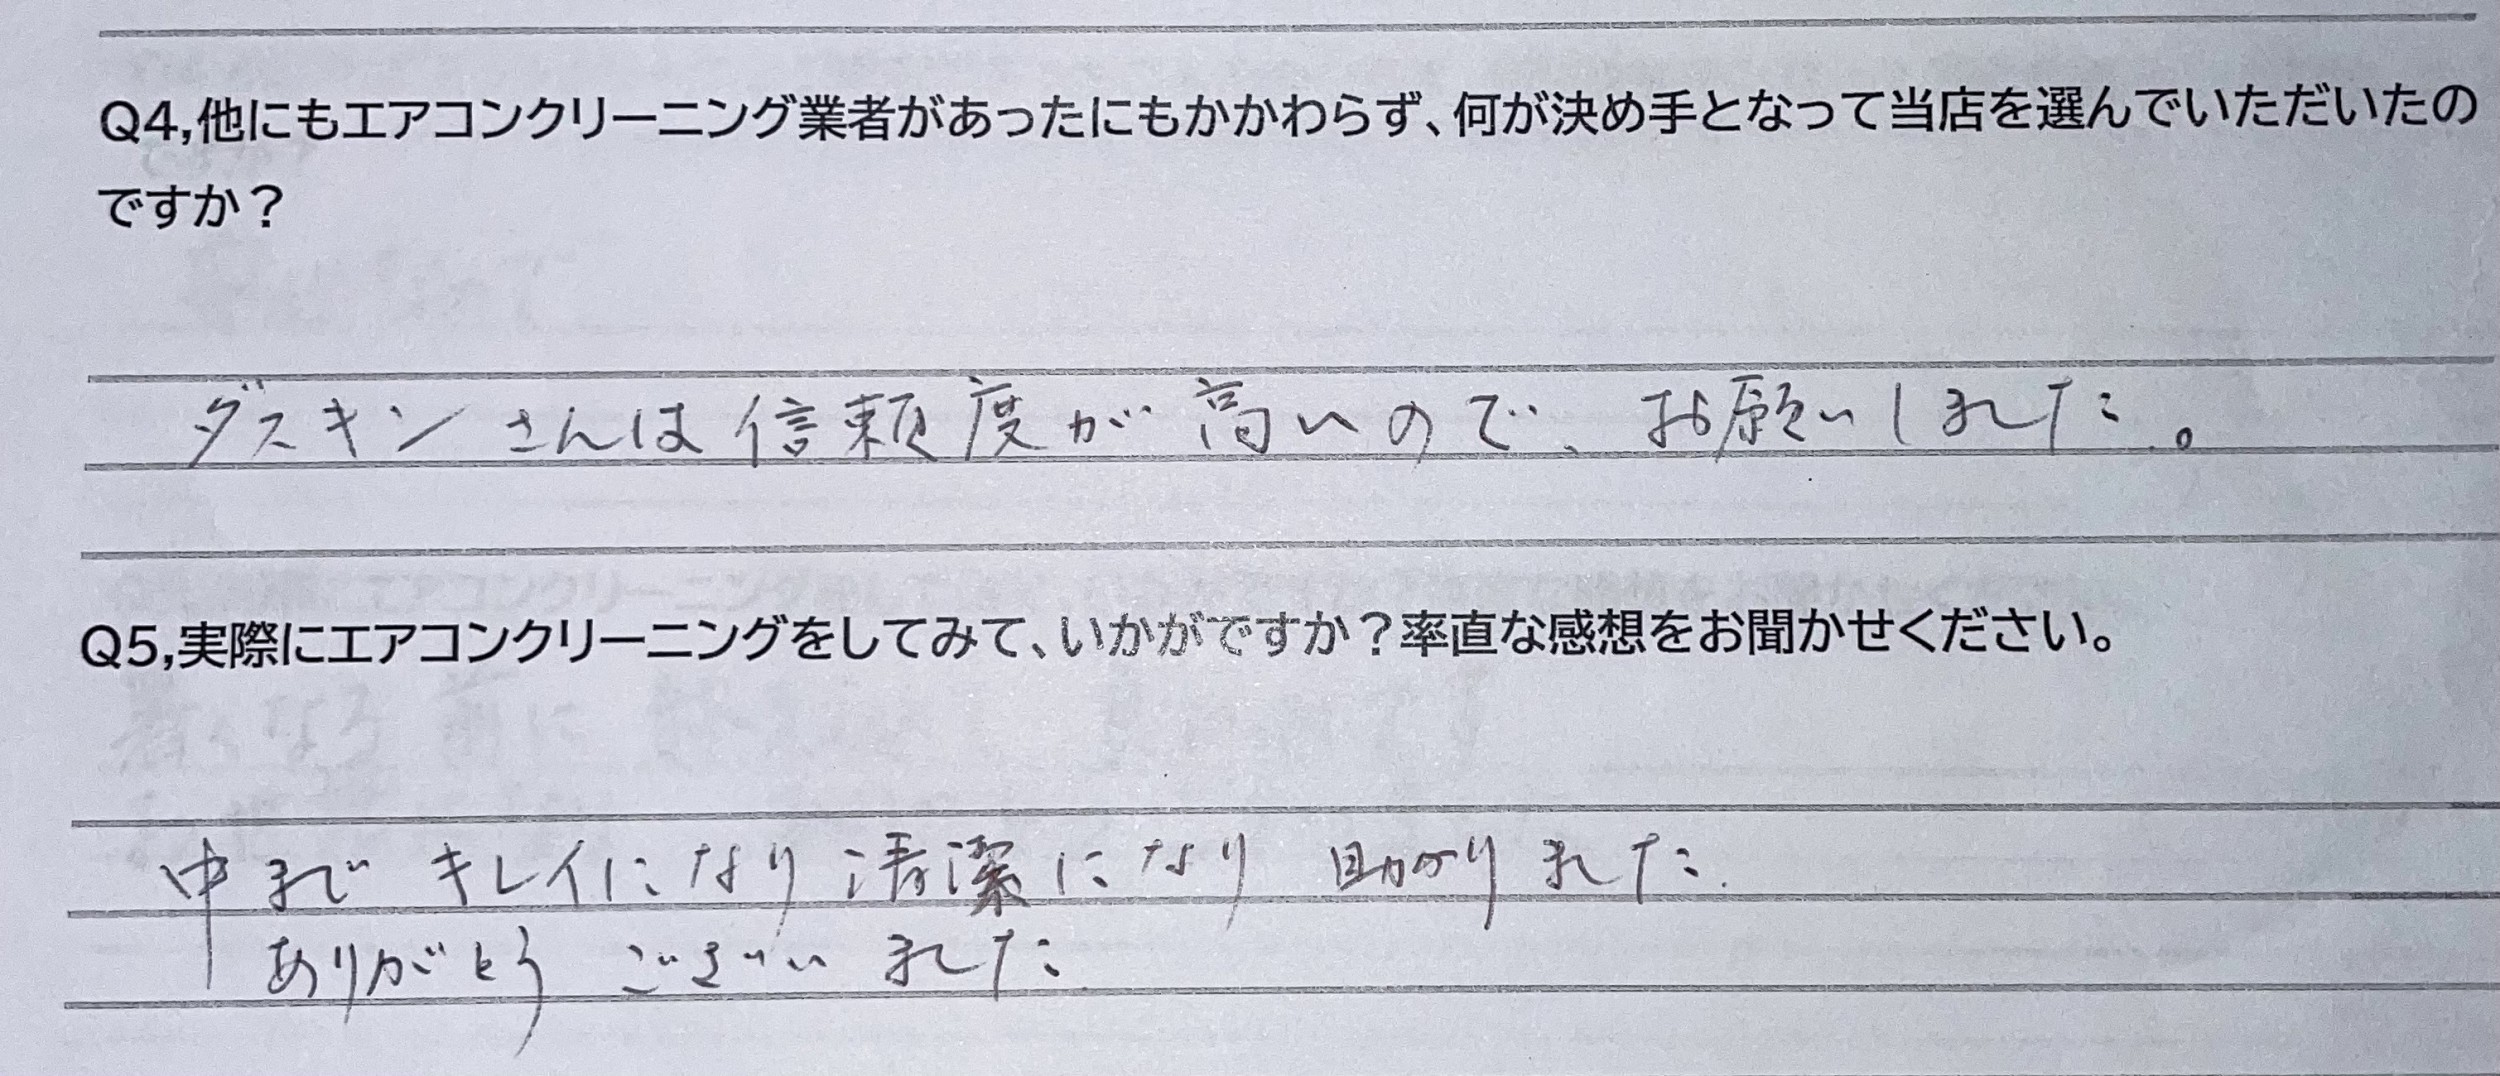 Q4,他にもエアコンクリーニング業者があったにもかかわらず、何が決め手となって当店を選んでいただいたの
ですか？
ダスキンさんは信頼度が高いので、お願いしました。
Q5,実際にエアコンクリーニングをしてみて、いかがですか？率直な感想をお聞かせください。
中まで キレイになり 清潔になり 助かりました.
ありがとう ございました